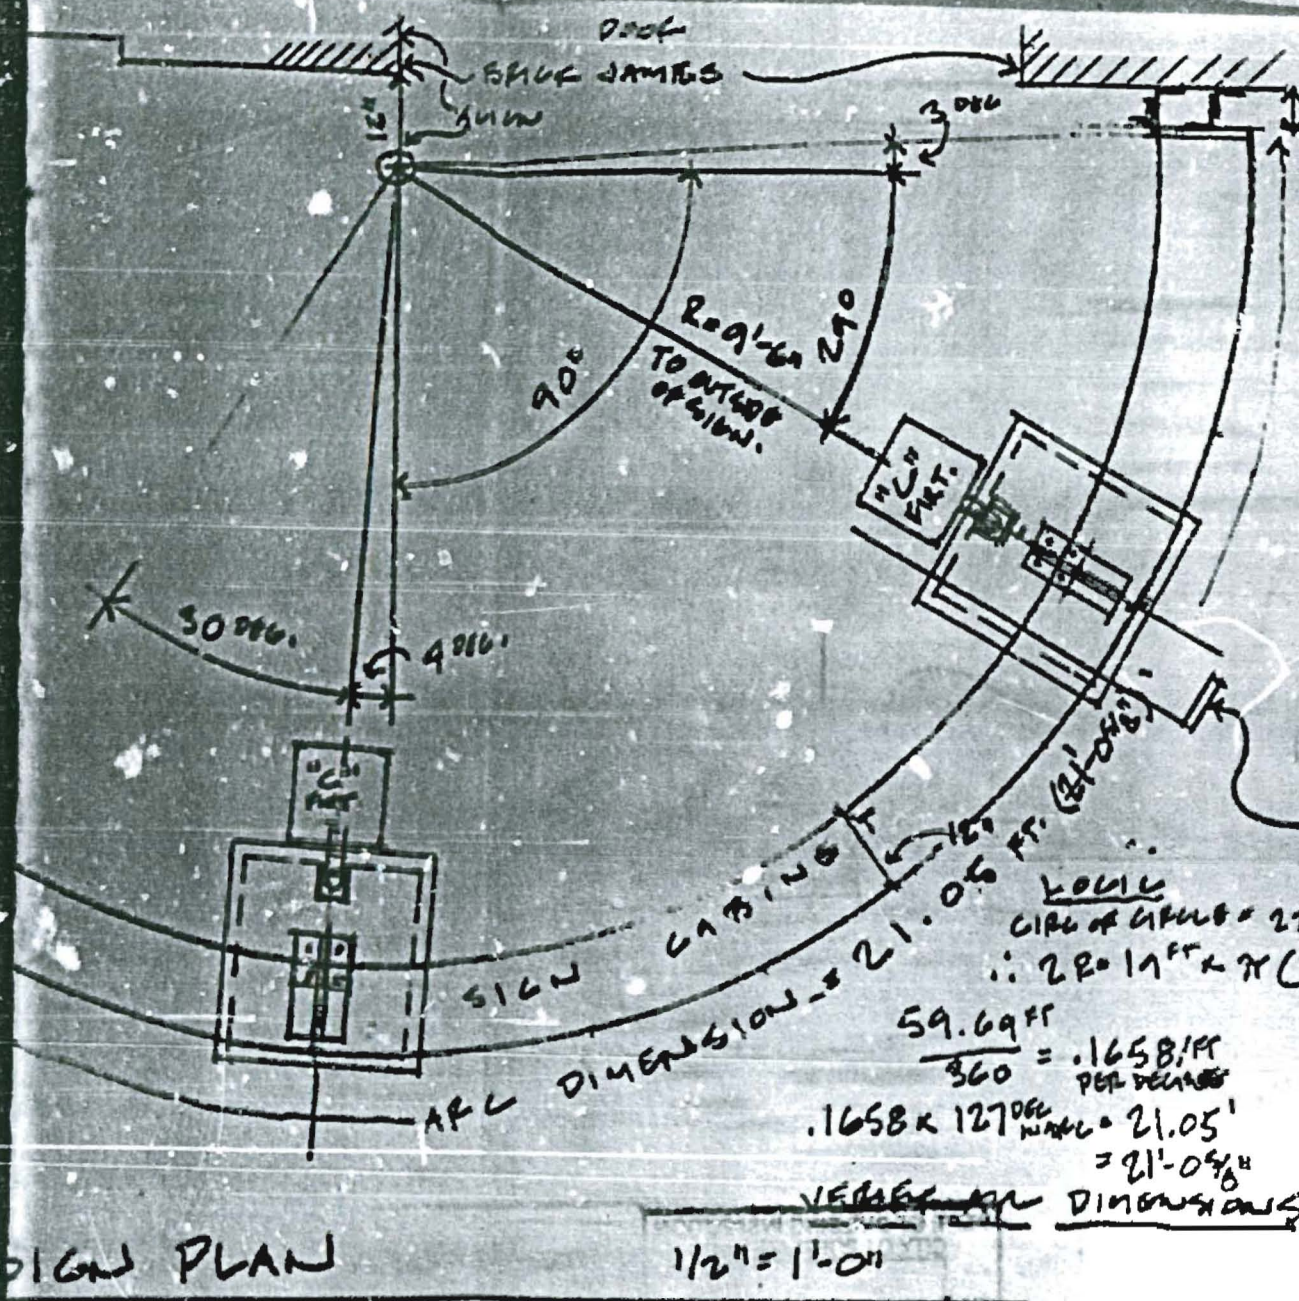 DOOR
BRICK JAMBS
ALIGN
16"
3 DEG
R=9'-6"
TO OUTSIDE
OF SIGN.
290
90°
"C"
FTRT.
30 DEG.
4 DEG.
"C"
12"
SIGN CASING
ARC DIMENSION = 21.05 FT. (21'-0 5/8")
LOGIC
CIRC OF CIRCLE = 2
∴ 2R=19FT x π (
59.69FT
360
= .1658'/FT
PER DEGREE
.1658 x 127DEG IN ARC = 21.05'
= 21'-0 5/8"
VERIFY ALL DIMENSIONS
SIGN PLAN
1/2" = 1'-0"